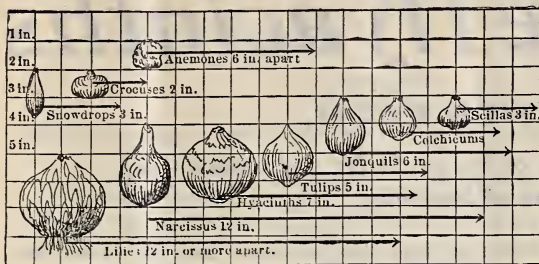 1 in.
Anemones 6 in. apart
2 in.
3 in.
Crocuses 2 in.
Snowdrops 3 in.
4 in.
Scillas 3 in.
Colchicums
5 in.
Jonquils 6 in.
Tulips 5 in.
Hyacinths 7 in.
Narcissus 12 in.
Lilies 12 in. or more apart.